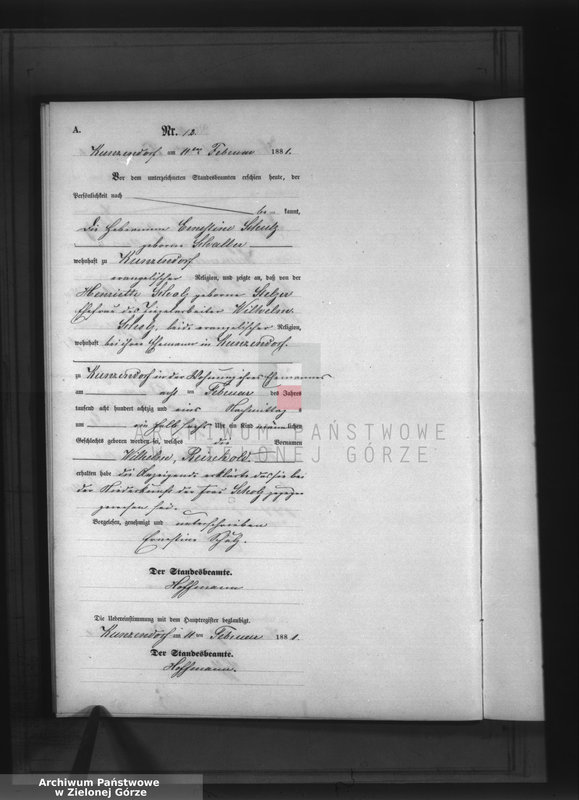 A.
Nr. 12.
Kunzendorf am 11ten Februar 1881.
Vor dem unterzeichneten Standesbeamten erschien heute, der
Persönlichkeit nach
be kannt,
Die Hebamme Ernestine Schulz
geborene
wohnhaft zu Kunzendorf
evangelischer Religion, und zeigte an, daß von der
Henriette Scholz geborene Stelzer
Ehefrau des Ziegelarbeiter Wilhelm
Scholz, beide evangelischer Religion,
wohnhaft bei ihrem Ehemann in Kunzendorf.
zu Kunzendorf in der Wohnung ihres Ehemannes
am acht ten Februar des Jahres
tausend acht hundert achtzig und eins Nachmittag s
um ein halb sechs Uhr ein Kind männ lichen
Geschlechts geboren worden sei, welches die Vornamen
Wilhelm, Reinhold
erhalten habe die Anzeigende erklärte das sie bei
der Niederkunft der Frau Scholz zugegen
gewesen sei.
Vorgelesen, genehmigt und unterschrieben
Ernestine Schulz.
Der Standesbeamte.
Hoffmann
Die Uebereinstimmung mit dem Hauptregister beglaubigt.
Kunzendorf am 11 ten Februar 1881.
Der Standesbeamte.
Hoffmann.
ARCHIWUM PAŃSTWOWE
W ZIELONEJ GÓRZE
Archiwum Państwowe
w Zielonej Górze